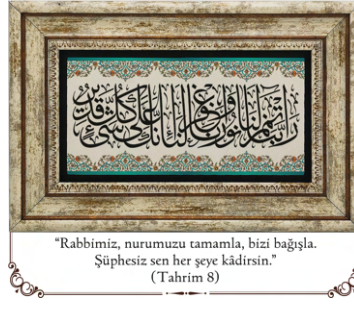 ربنا اتمم لنا نورنا واغفر لنا انك على كل شئ قدير
“Rabbimiz, nurumuzu tamamla, bizi bağışla.
Şüphesiz sen her şeye kâdirsin.”
(Tahrim 8)